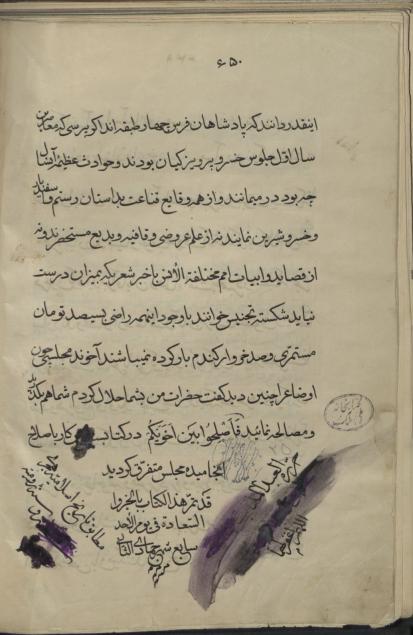 ۶۵۰
اینقدر دانند که پادشاهان فرس چهار طبقه اند اگر پرسی که معاصرین
سال اوّل جلوس خسرو پرویز کیان بودند و حوادث عظیم آنسال
چه بود در میمانند و از همه وقایع قناعت بداستان رستم و اسفندیار
و خسرو شیرین نمایند نه از علم عروضی و قافیه و بدیع مستحضرند و نه
از قصاید و ابیات امم مختلفة الألسن باخبر شعریکه بمیزان درست
نیاید شکسته تجنیس خوانند باوجود اینهمه راضی بسیصد تومان
مستمرّی و صد خروار گندم بار کرده نمیباشند آخوند مجلسی چون
اوضاع را چنین دید گفت حضرات من بشما حلال کردم شما هم
و مصالحه نمائید فَأَصلِحُوا بَینَ أَخَوَیکُم در کتاب کار باصلاح
انجامید مجلس متفرق گردید
قد تم هذا الکتاب
السعادة فی یوم الأحد
سابع شهر جمادی الثانی